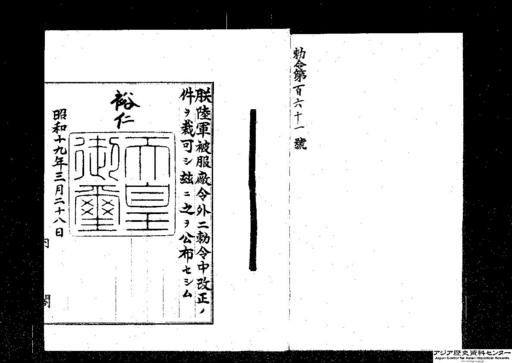 勅令第百六十一號
朕陸軍被服廠令外二勅令中改正ノ
件ヲ裁可シ玆ニ之ヲ公布セシム
裕仁
天皇
御璽
昭和十九年三月二十八日
内閣
アジア歴史資料センター
Japan Center for Asian Historical Records